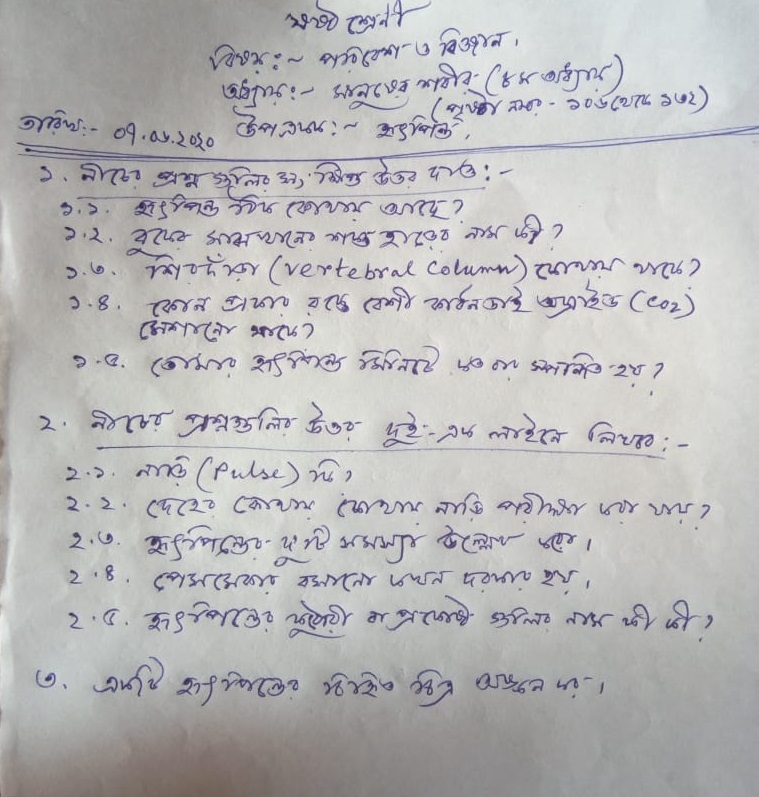 ষষ্ঠ শ্রেণী
বিষয়:~ পরিবেশ ও বিজ্ঞান।
অধ্যায়:- মানুষের শরীর (৮ম অধ্যায়)
(পৃষ্ঠা নম্বর - ১০৬ থেকে ১৩২)
তারিখ:- ০৭.০৮.২০২০ উপএকক:~ হৃৎপিণ্ড,
১. নীচের প্রশ্ন গুলির সংক্ষিপ্ত উত্তর দাও:-
১.১. হৃৎপিণ্ড ঠিক কোথায় আছে?
১.২. বুকের মাঝখানের শক্ত হাড়ের নাম কী?
১.৩. শিরদাঁড়া (vertebral column) কোথায় থাকে?
১.৪. কোন প্রকার রক্তে বেশী কার্বন ডাই অক্সাইড (CO2)
মেশানো থাকে?
১.৫. তোমার হৃৎপিণ্ড মিনিটে কত বার স্পন্দিত হয়?
২. নীচের প্রশ্নগুলির উত্তর দুই-এক লাইনে লিখবে:-
২.১. নাড়ি (Pulse) কি?
২.২. দেহের কোথায় কোথায় নাড়ি পরীক্ষা করা যায়?
২.৩. হৃৎপিণ্ডের দুটি সমস্যা উল্লেখ করো।
২.৪. পেসমেকার বসানো কখন দরকার হয়।
২.৫. হৃৎপিণ্ডের কুঠুরী বা প্রকোষ্ঠ গুলির নাম কী কী?
৩. একটি হৃৎপিণ্ডের চিহ্নিত চিত্র অঙ্কন কর।